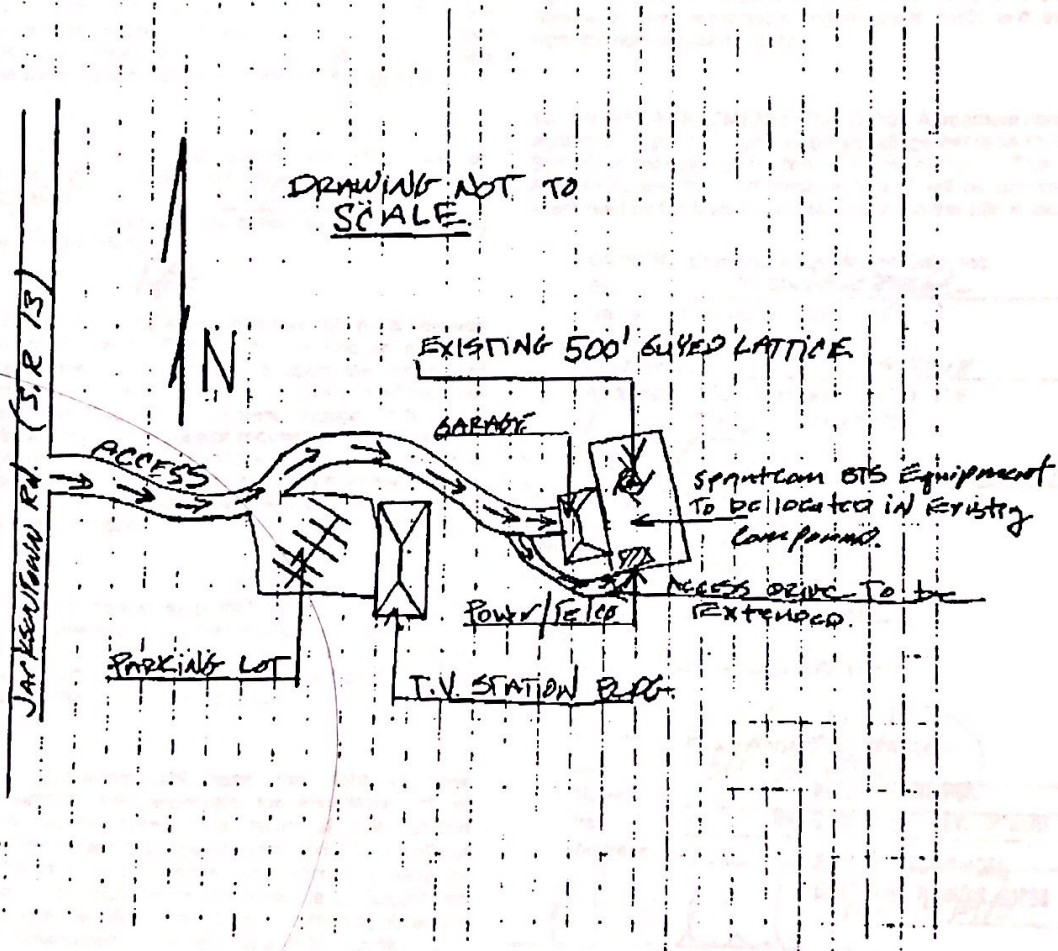 DRAWING NOT TO
SCALE
N
JACKSONTOWN RD. (S.R 13)
EXISTING 500' GUYED LATTICE
GARAGE
ACCESS
Sprintcom BTS Equipment
To be located in Existing
Compound.
ACCESS DRIVE To be
Extended.
Power/Telco
PARKING LOT
T.V. STATION BLDG.